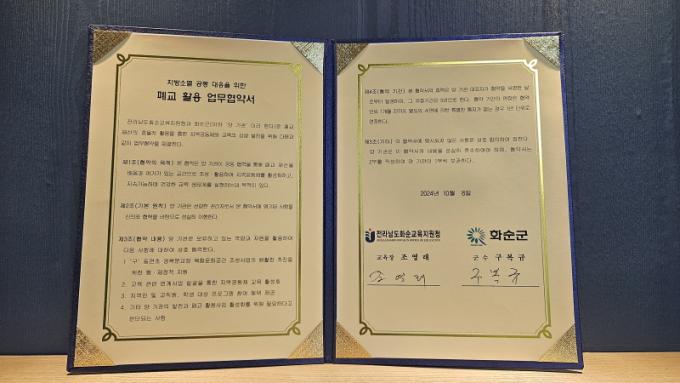 지방소멸 공동 대응을 위한
폐교 활용 업무협약서
전라남도화순교육지원청과 화순군(이하 "양 기관" 이라 한다)은 폐교
재산의 효율적 활용을 통한 지역공동체와 교육의 상생 발전을 위해 다음과
같이 업무협약을 체결한다.
제1조(협약의 목적) 본 협약은 양 기관이 공동 협력을 통해 폐교 재산을
배움과 여가가 있는 공간으로 조성·활용하여 지역공동체를 활성화하고,
지속가능하며 건강한 교육 생태계를 실현하는데 목적이 있다.
제2조(기본 원칙) 양 기관은 성실한 관리자로서 본 협약서에 명기된 사항을
신의와 협력을 바탕으로 성실히 이행한다.
제3조(협약 내용) 양 기관은 보유하고 있는 역량과 자원을 활용하여
다음 사항에 대하여 상호 협력한다.
1. '구' 동면초 경북분교장 복합문화공간 조성사업의 원활한 추진을
위한 행·재정적 지원
2. 교육 관련 연계사업 발굴을 통한 지역공동체 교육 활성화
3. 지역민 및 교직원, 학생 대상 프로그램 참여 혜택 제공
4. 기타 양 기관의 발전과 폐교 활용사업 활성화를 위해 필요하다고
판단되는 사항
제4조(협약 기간) 본 협약서의 효력은 양 기관 대표자가 협약을 체결한 날
로부터 발생하며, 그 유효기간은 5년으로 한다. 협약 기간의 만료일
만료 1개월 이전에 별도의 서면에 의한 특별한 통지가 없는 경우 1년 단위로
연장한다.
제5조(기타) 이 협약서에 명시되지 않은 사항은 상호 협의하여 정한다.
양 기관은 이 협약서의 내용을 성실히 준수하여야 하며, 협약서는
2부를 작성하여 각 기관이 1부씩 보관한다.
2024년 10월 8일
전라남도화순교육지원청
화순군
교육장 조영래
군수 구복규
조영래
구복규